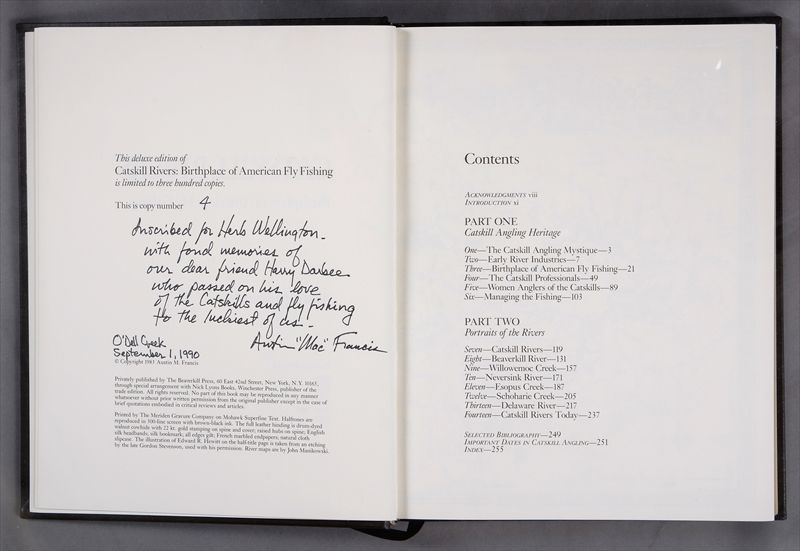 This deluxe edition of
Catskill Rivers: Birthplace of American Fly Fishing
is limited to three hundred copies.
This is copy number 4
Inscribed for Herb Wellington -
with fond memories of
our dear friend Harry Darbee
who passed on his love
of the Catskills and fly fishing
to the luckiest of us -
Austin "Mac" Francis
O'Dell Creek
September 1, 1990
© Copyright 1983 Austin M. Francis
Privately published by The Beaverkill Press, 60 East 42nd Street, New York, N.Y. 10165,
through special arrangement with Nick Lyons Books, Winchester Press, publisher of the
trade edition. All rights reserved. No part of this book may be reproduced in any manner
whatsoever without prior written permission from the original publisher except in the case of
brief quotations embodied in critical reviews and articles.
Printed by The Meriden Gravure Company on Mohawk Superfine Text. Halftones are
reproduced in 300-line screen with brown-black ink. The full leather binding is drum-dyed
walnut cowhide with 22 kt. gold stamping on spine and cover; raised hubs on spine; English
silk headbands; silk bookmark; all edges gilt; French marbled endpapers; natural cloth
slipcase. The illustration of Edward R. Hewitt on the half-title page is taken from an etching
by the late Gordon Stevenson, used with his permission. River maps are by John Manikowski.
Contents
ACKNOWLEDGMENTS viii
INTRODUCTION xi
PART ONE
Catskill Angling Heritage
One—The Catskill Angling Mystique—3
Two—Early River Industries—7
Three—Birthplace of American Fly Fishing—21
Four—The Catskill Professionals—49
Five—Women Anglers of the Catskills—89
Six—Managing the Fishing—103
PART TWO
Portraits of the Rivers
Seven—Catskill Rivers—119
Eight—Beaverkill River—131
Nine—Willowemoc Creek—157
Ten—Neversink River—171
Eleven—Esopus Creek—187
Twelve—Schoharie Creek—205
Thirteen—Delaware River—217
Fourteen—Catskill Rivers Today—237
SELECTED BIBLIOGRAPHY—249
IMPORTANT DATES IN CATSKILL ANGLING—251
INDEX—255